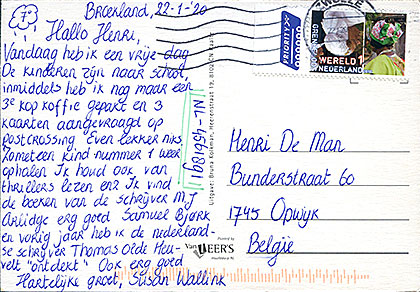 Broekland, 22-1-'20
7°
Hallo Henri,
Vandaag heb ik een vrije dag
De kinderen zijn naar school,
inmiddels heb ik nog maar een
3e kop koffie gepakt en 3
kaarten aangevraagd op
Postcrossing. Even lekker niks.
Zometeen kind nummer 1 weer
ophalen. Ik houd ook van
thrillers lezen en? Ik vind
de boeken van de schrijver M.J.
Arlidge erg goed Samuel Bjørk
en vorig jaar heb ik de nederland-
se schrijver Thomas Olde Heu-
velt "ontdekt". Ook erg goed
Hartelijke groet, Susan Wallink
NL-4561891
PRIORITY
WERELD 1
NEDERLAND
Henri De Man
Bunderstraat 60
1745 Opwijk
België
Powered by
Van der MEER'S